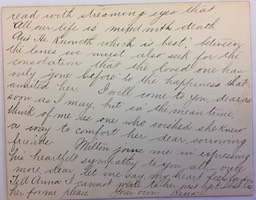 read with streaming eyes that
"All our life is mixed with death,
And He knoweth which is best," between
the lines we must also seek for the
consolation that the loved one has
only gone before to the happiness that
awaited her. I will come to you, dearie
soon as I may, but in the mean time,
think of me as one who wished she knew
a way to comfort her dear, sorrowing
friends. Milton joins me in expressing
his heartfelt sympathy to you all. Once
more dear, let me say, my heart feels for you
Tell Anna I cannot write to her just yet
her for me please. Your own